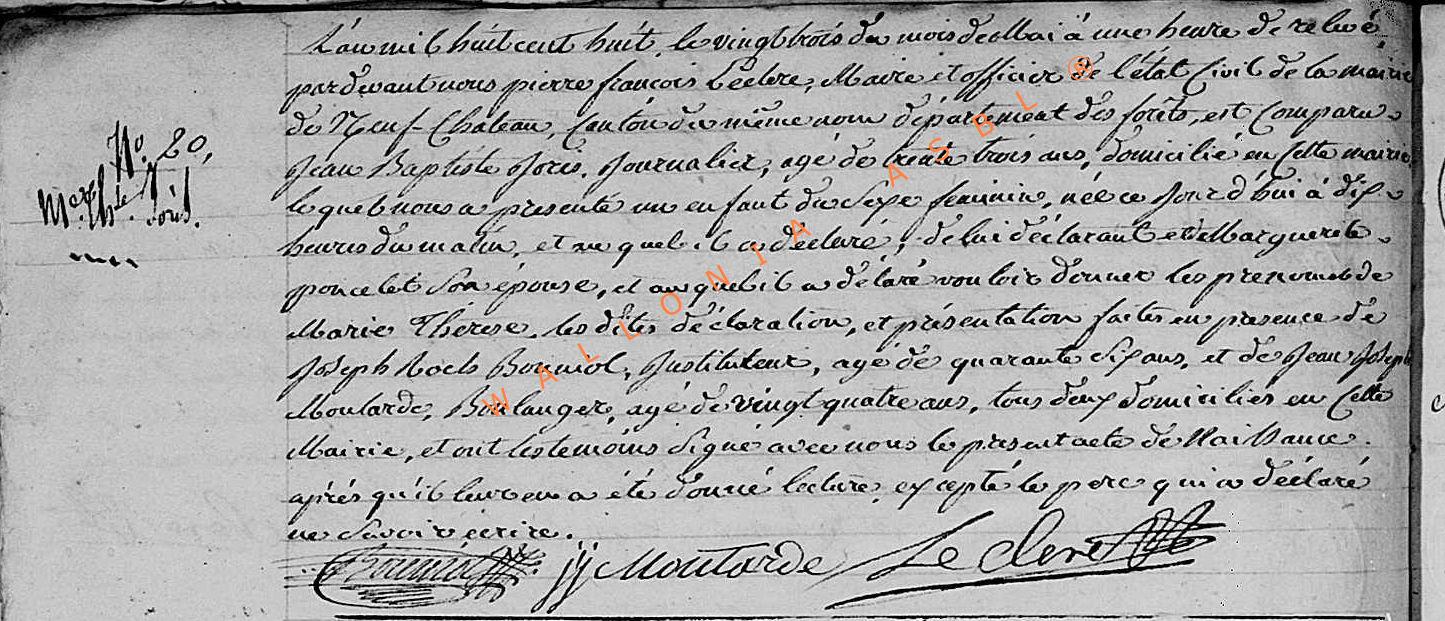 L'an mil huit cent huit, le vingt trois du mois de Mai à une heure de relevé,
pardevant nous pierre françois Leclere, Maire et officier de l'état Civil de la mairie
de Neuf-Chateau, Canton du même nom département des forêts, est Comparu
No. 20,
Jean Baptiste Joris, Journalier, agé de trente trois ans, domicilié en Cette mairie,
Mie. Thse. Joris.
lequel nous a presente un enfant du Sexe feminin, née ce Jourd'hui à dix
heures du matin, et au quel il a declaré, de lui déclarant et de Marguerite
poncelet Son épouse, et auquel il a déclaré vouloir donner les prenoms de
Marie Therese, les dites déclaration, et présentation faites en presence de
Joseph Roch Instituteur, agé de quarante Six ans, et de Jean Joseph
Moutarde, Boulanger, agé de vingt quatre ans, tous deux domiciliés en Cette
Mairie, et ont les temoins Signé avec nous le present acte de Naissance.
après qu'il leur en a été donné lecture, excepté le pere qui a déclaré
ne Savoir écrire.
JJ Moutarde Leclere
WALLONIA ASBL ®